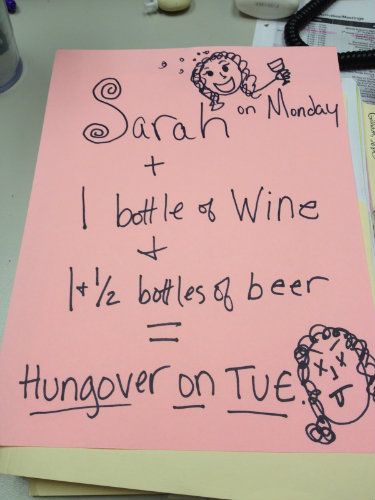 Sarah on Monday
+
1 bottle of Wine
+
1 + 1/2 bottles of beer
=
Hungover on TUE.